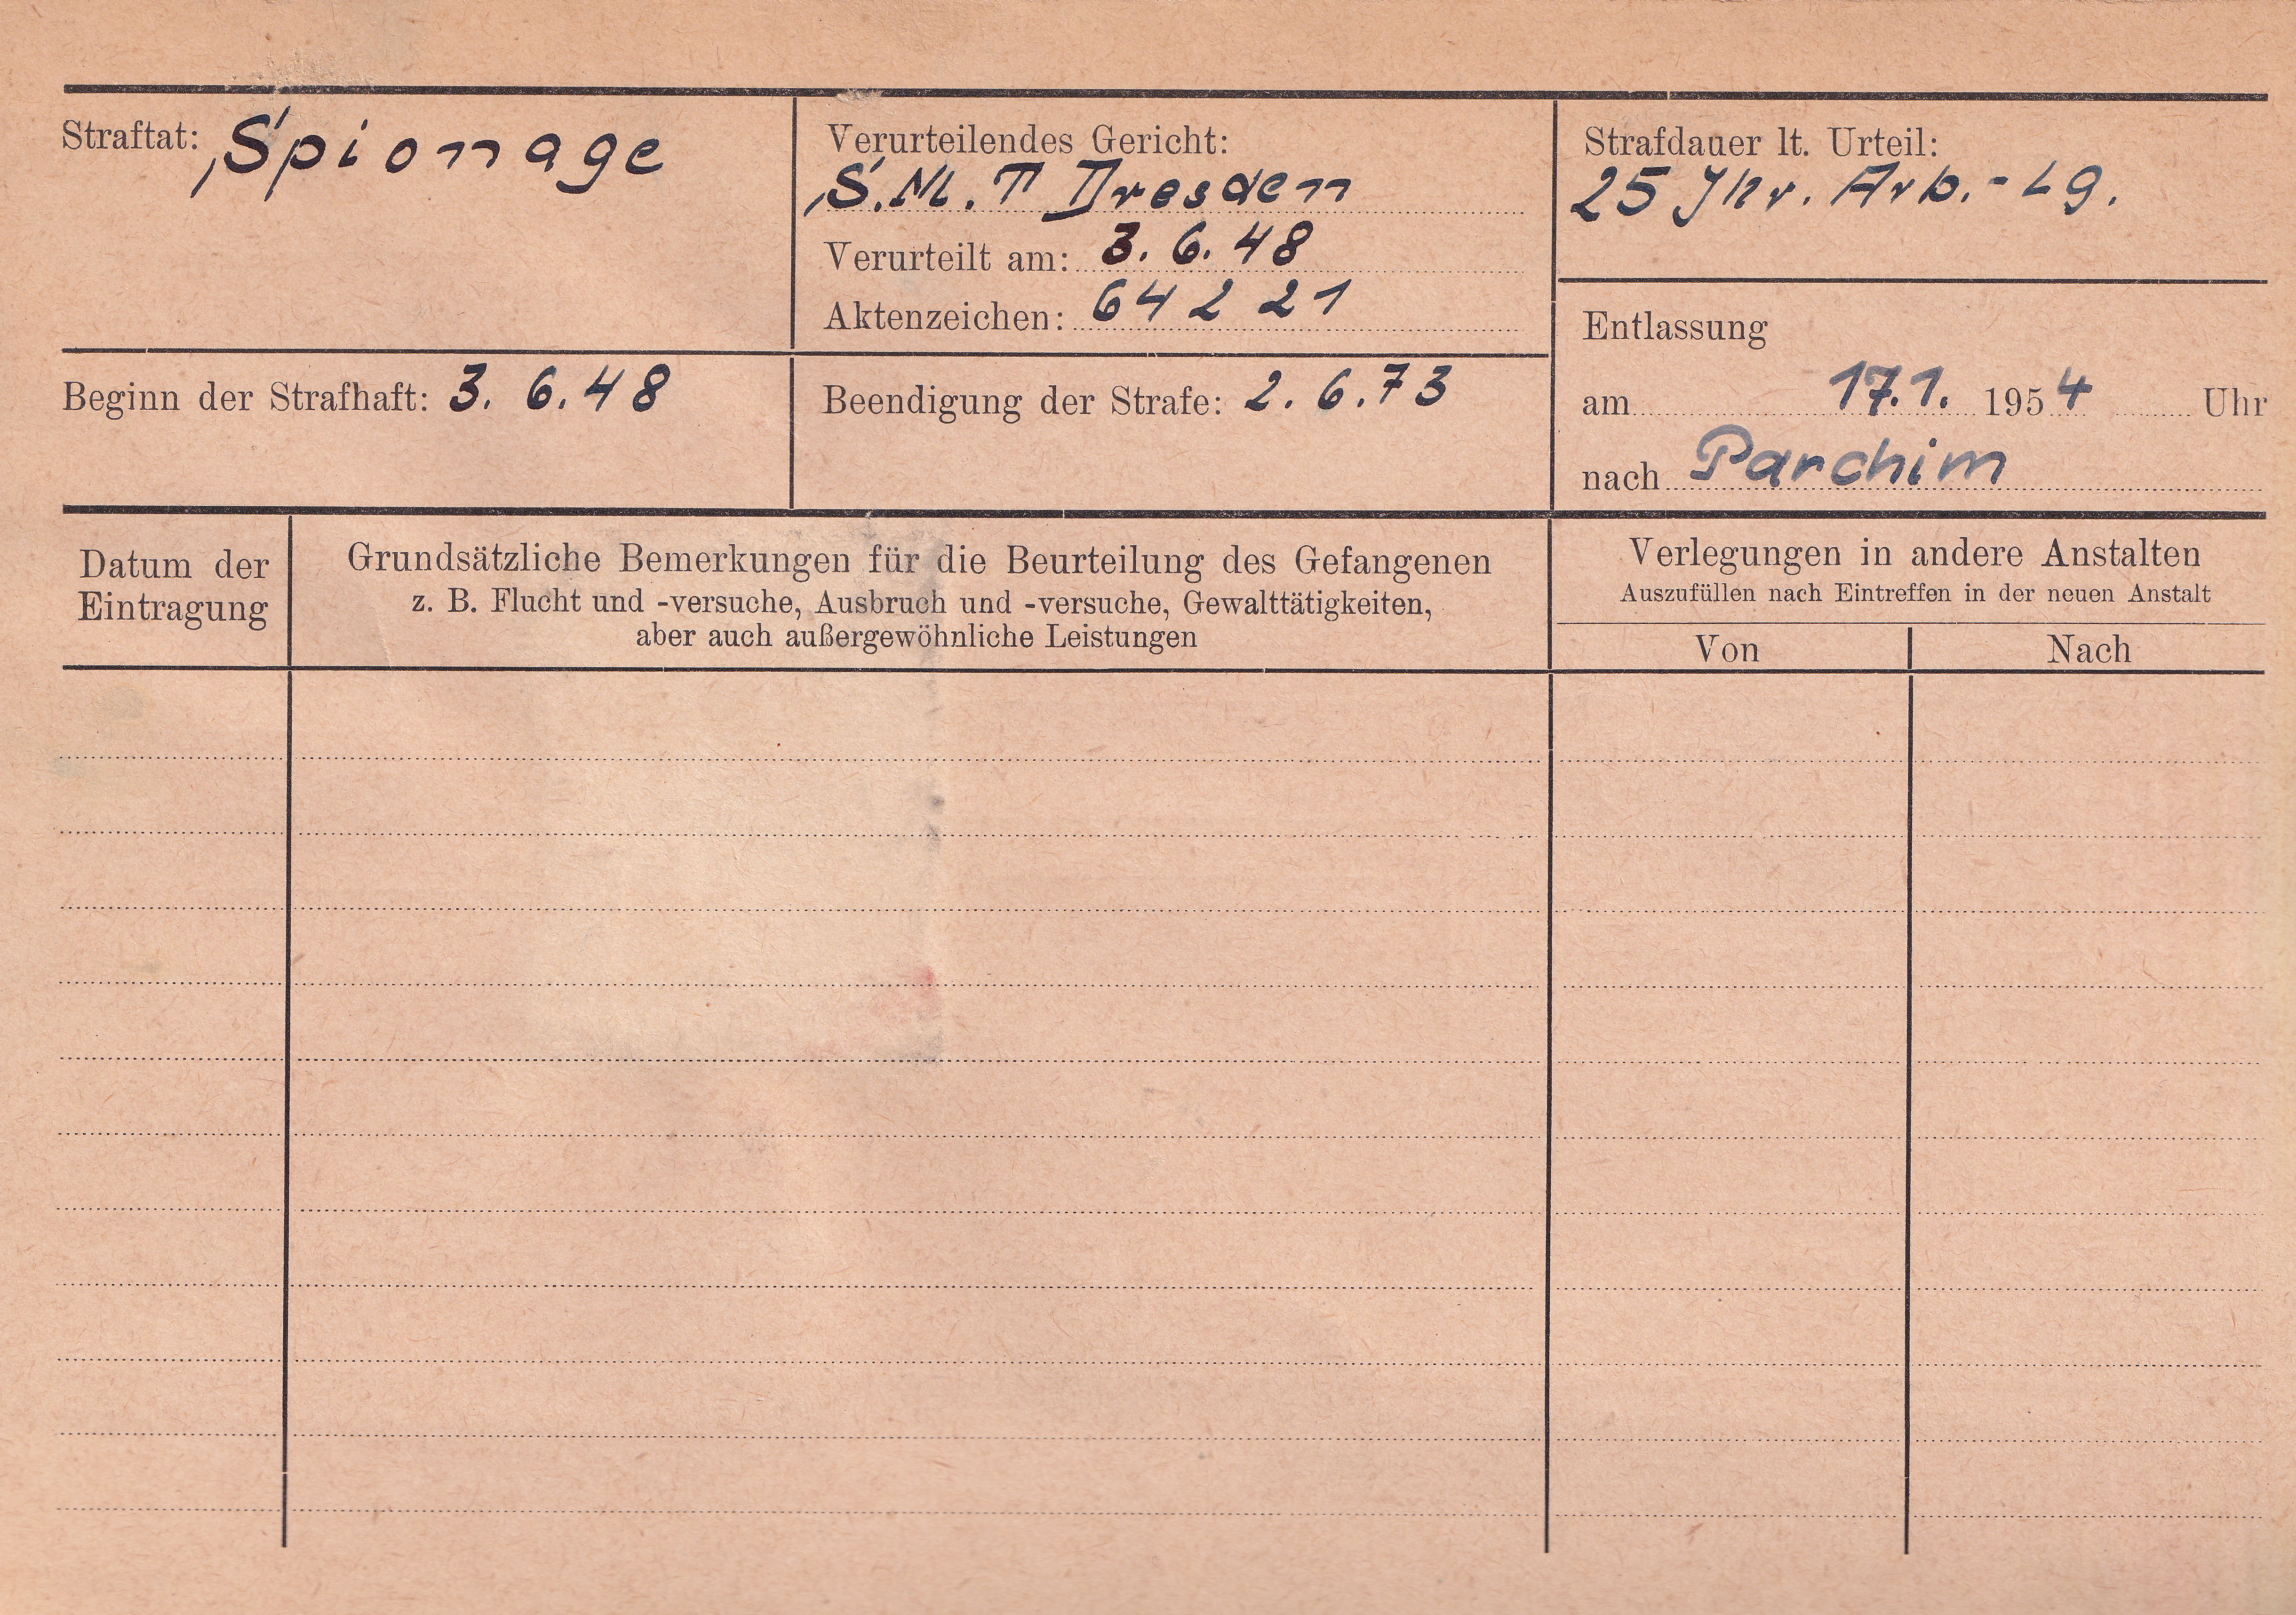 Straftat: Spionage
Verurteilendes Gericht:
S.M.T Dresden
Verurteilt am: 3. 6. 48
Aktenzeichen: 642 21
Strafdauer lt. Urteil:
25 Jhr. Arb.-Lg.
Beginn der Strafhaft: 3. 6. 48
Beendigung der Strafe: 2. 6. 73
Entlassung
am 17.1. 1954 Uhr
nach Parchim
Datum der
Eintragung
Grundsätzliche Bemerkungen für die Beurteilung des Gefangenen
z. B. Flucht und -versuche, Ausbruch und -versuche, Gewalttätigkeiten,
aber auch außergewöhnliche Leistungen
Verlegungen in andere Anstalten
Auszufüllen nach Eintreffen in der neuen Anstalt
Von Nach